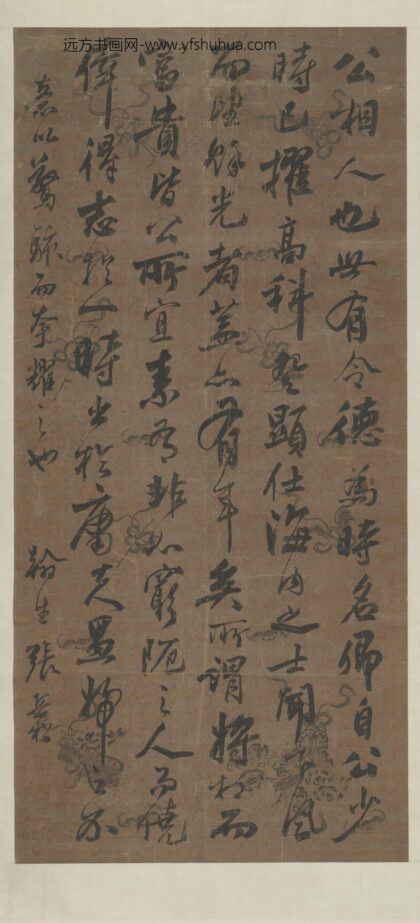 远方书画网-www.yfshuhua.com
公相人也世有令德為時名卿自公少
時已擢高科登顯仕海內之士聞下風
而望餘光者蓋亦有年矣所謂將相而
富貴皆公所宜素有非如窮阨之人而僥
倖得志於一時出於庸夫愚婦之不
意以驚駭而夸耀之也
翰生張